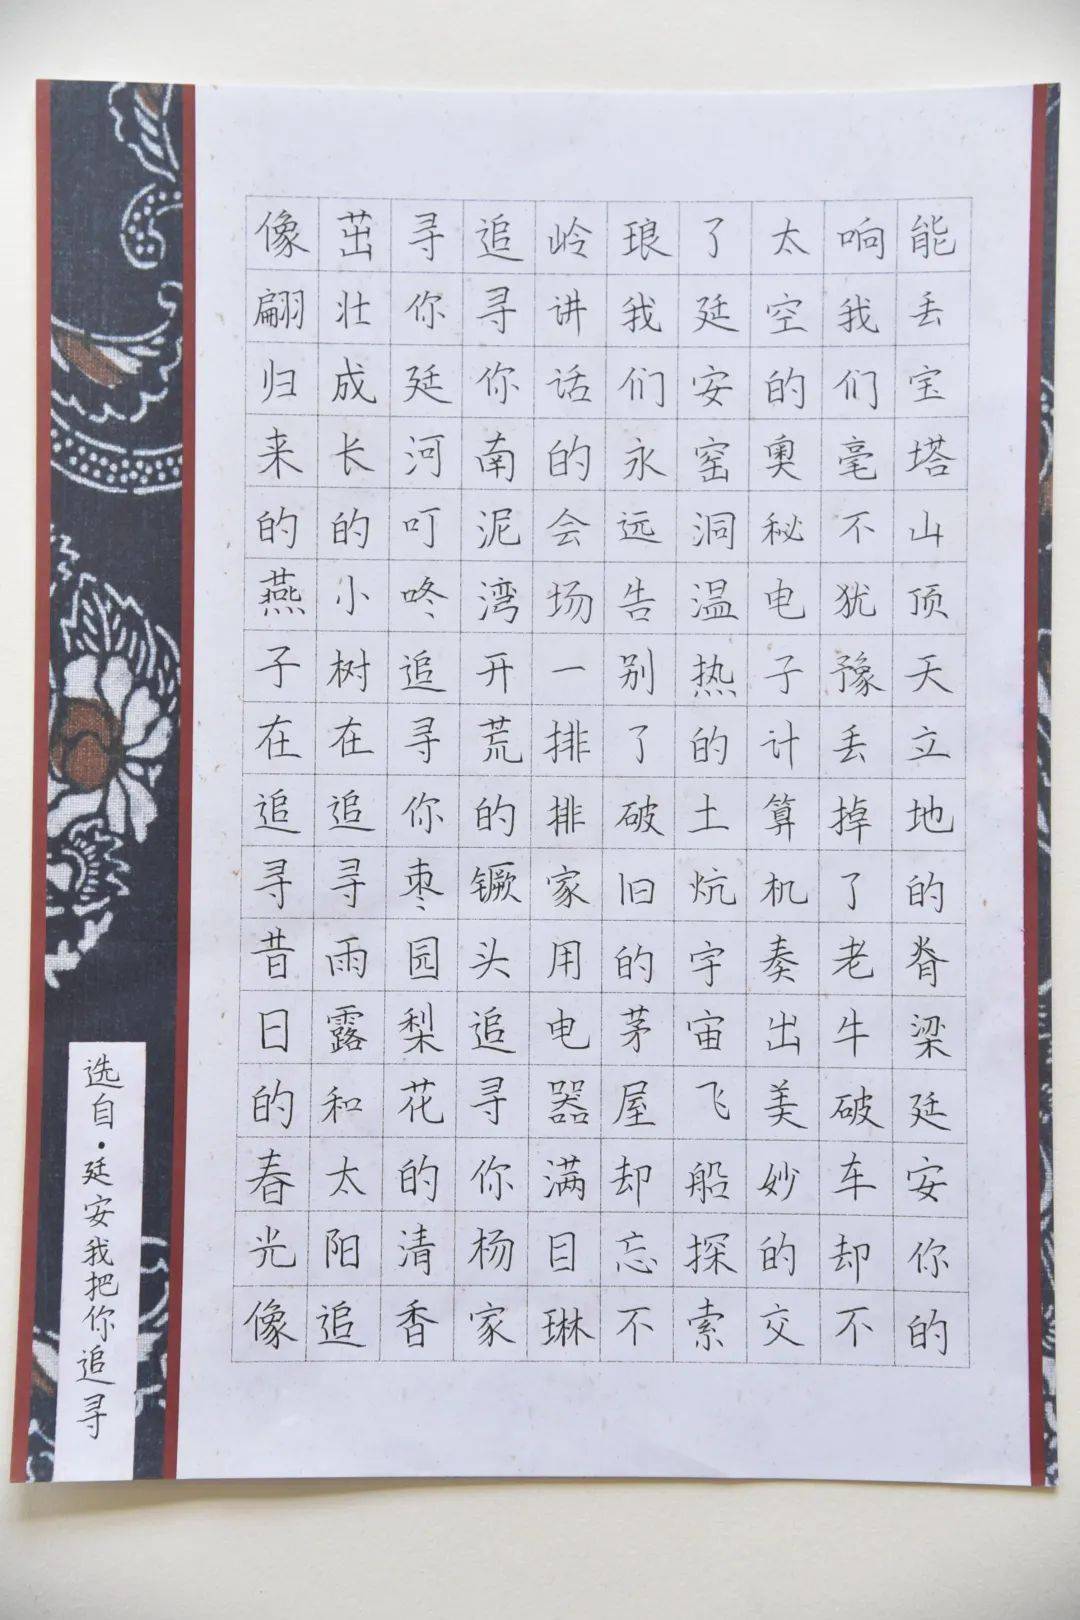 像翩归来的燕子在追寻昔日的春光像
茁壮成长的小树在追寻雨露和太阳追
寻你廷河叮咚追寻你枣园梨花的清香
追寻你南泥湾开荒的镢头追寻你杨家
岭讲话的会场一排排家用电器满目琳
琅我们永远告别了破旧的茅屋却忘不
了廷安窑洞温热的土炕宇宙飞船探索
太空的奥秘电子计算机奏出美妙的交
响我们毫不犹豫丢掉了老牛破车却不
能丢宝塔山顶天立地的脊梁廷安你的
选自·廷安我把你追寻